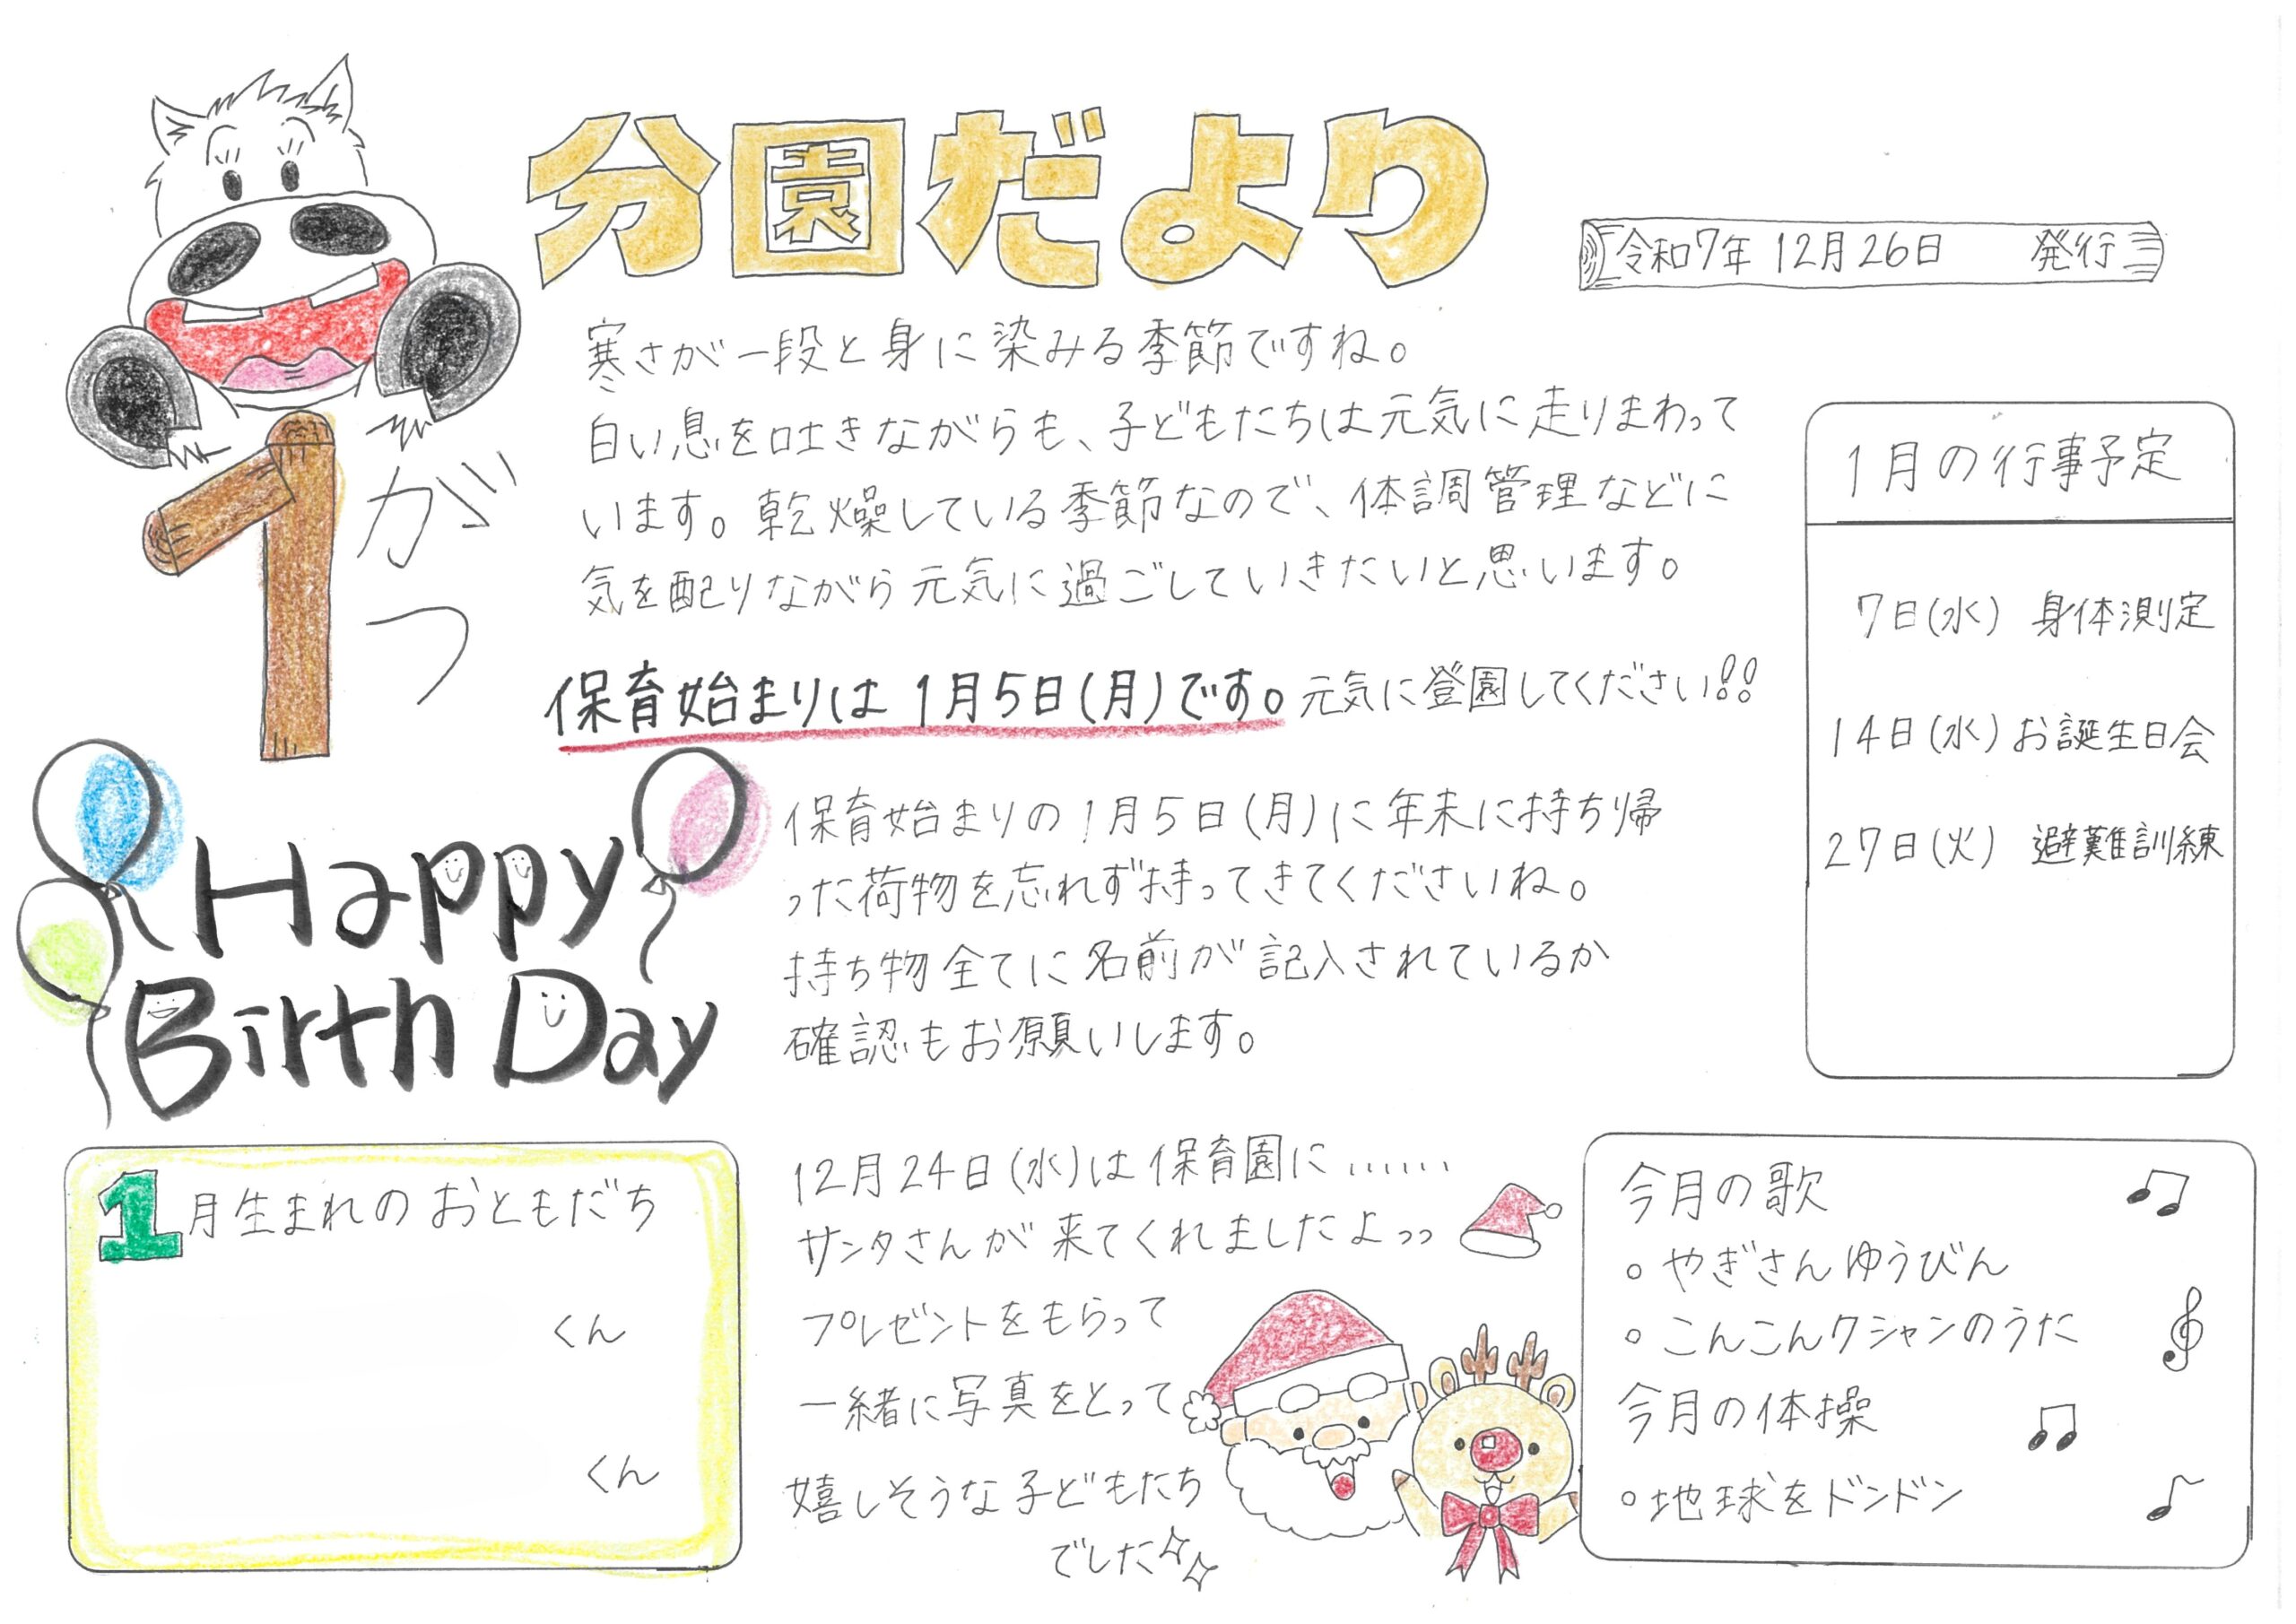 分園だより
令和7年 12月26日 発行
1がつ
寒さが一段と身に染みる季節ですね。
白い息を吐きながらも、子どもたちは元気に走りまわって
います。乾燥している季節なので、体調管理などに
気を配りながら元気に過ごしていきたいと思います。
保育始まりは1月5日(月)です。元気に登園してください!!
1月の行事予定
7日(水) 身体測定
14日(水) お誕生日会
27日(火) 避難訓練
Happy
Birth Day
保育始まりの1月5日(月)に年末に持ち帰
った荷物を忘れず持ってきてくださいね。
持ち物全てに名前が記入されているか
確認もお願いします。
1月生まれのおともだち
くん
くん
12月24日(水)は保育園に……
サンタさんが来てくれましたよっっ
プレゼントをもらって
一緒に写真をとって
嬉しそうな子どもたち
でした
今月の歌
○やぎさんゆうびん
○こんこんクシャンのうた
今月の体操
○地球をドンドン